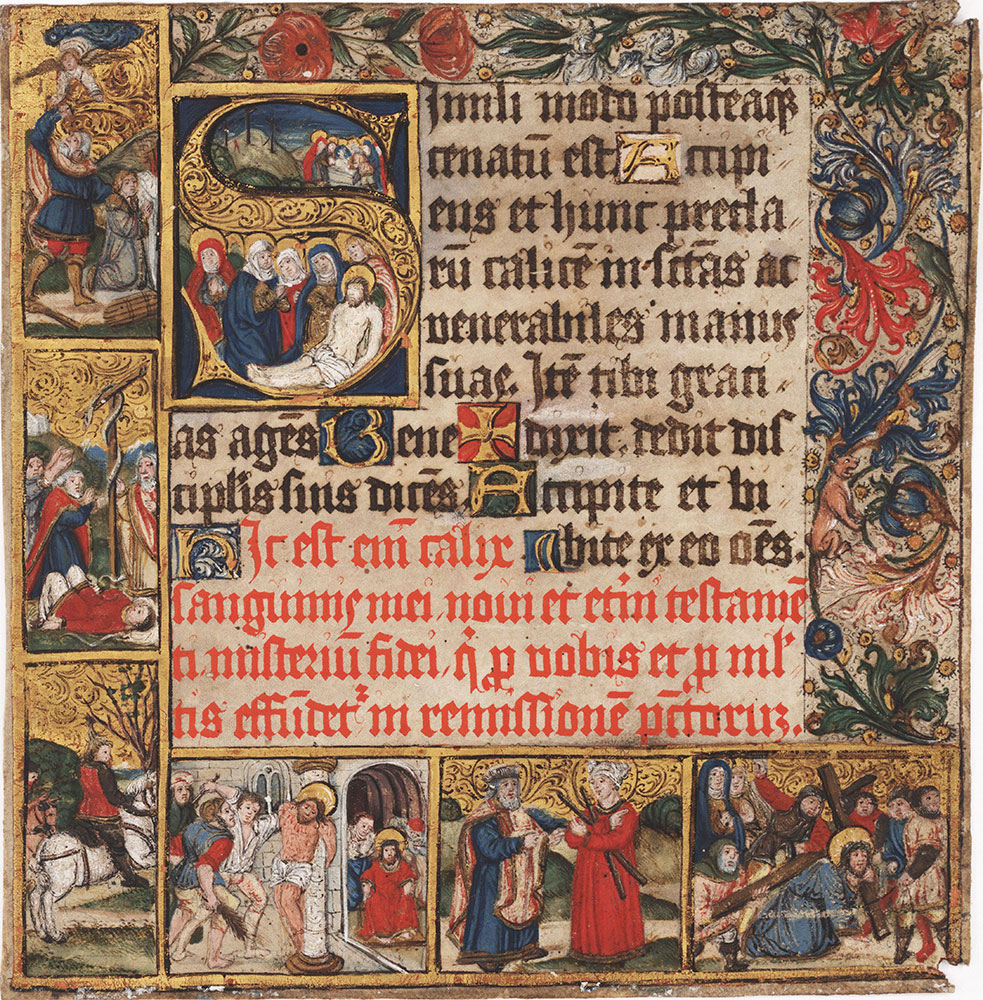 Simili modo posteaq̄
cenatū est Accipi
ens et hunc precla-
rū calicē in sctās ac
venerabiles manus
suas. Itē tibi grati-
as agēs Bene ✠ dixit. dedit dis
ciplis suis dicēs Accipite et bi
bite ex eo oēs.
Hic est em̄ calix
sanguinis mei, novi et etīn testamē
ti, misteriū fidei, q̄ p̱ vobis et p̱ ml'
tis effūdet᷑ in remissionē pctōrūꝫ.